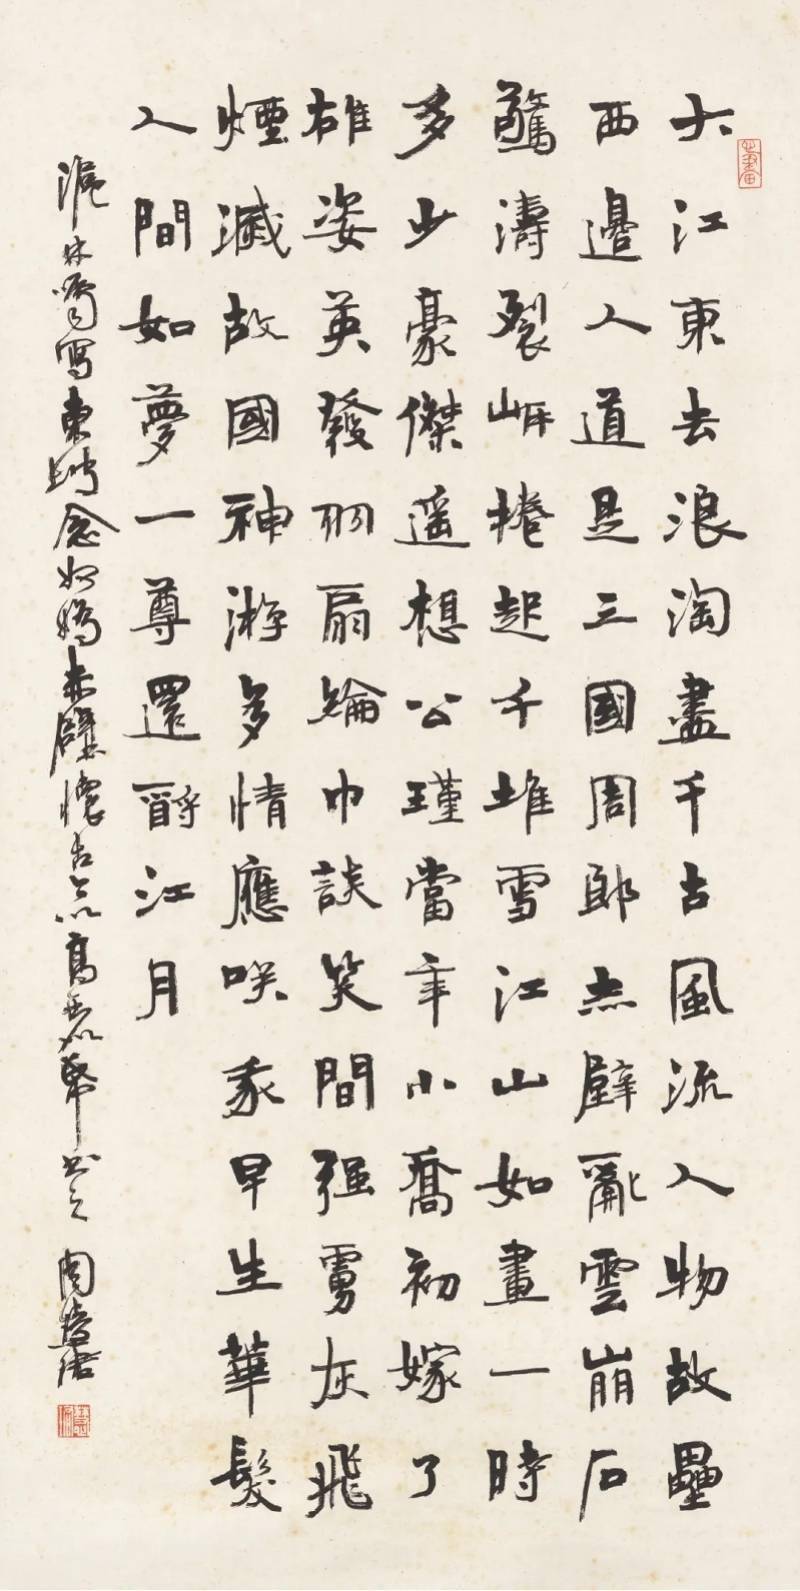 大江東去浪淘盡千古風流人物故壘
西邊人道是三國周郎赤壁亂雲崩石
驚濤裂岸捲起千堆雪江山如畫一時
多少豪傑遥想公瑾當年小喬初嫁了
雄姿英發羽扇綸巾談笑間强虜灰飛
煙滅故國神游多情應咲我早生華髮
人間如夢一尊還酹江月
囑寫東坡念奴嬌赤壁懷古 周慧珺